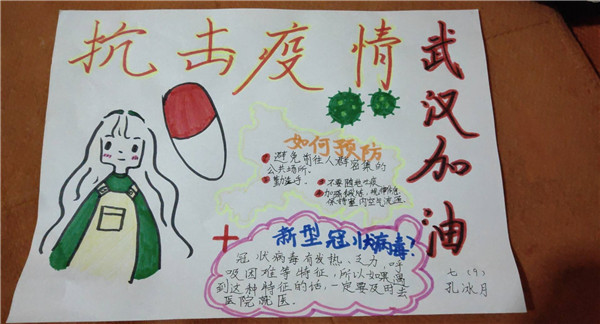 抗击疫情
武汉加油
如何预防
避免前往人群密集的
公共场所。
勤洗手。
不要随地吐痰
加强锻炼，规律作息
保持室内空气流通
新型冠状病毒？
冠状病毒有发热、乏力、呼
吸困难等特征，所以如果遇
到这种特征的话，一定要及时去
医院就医。
七（9）
孔冰月